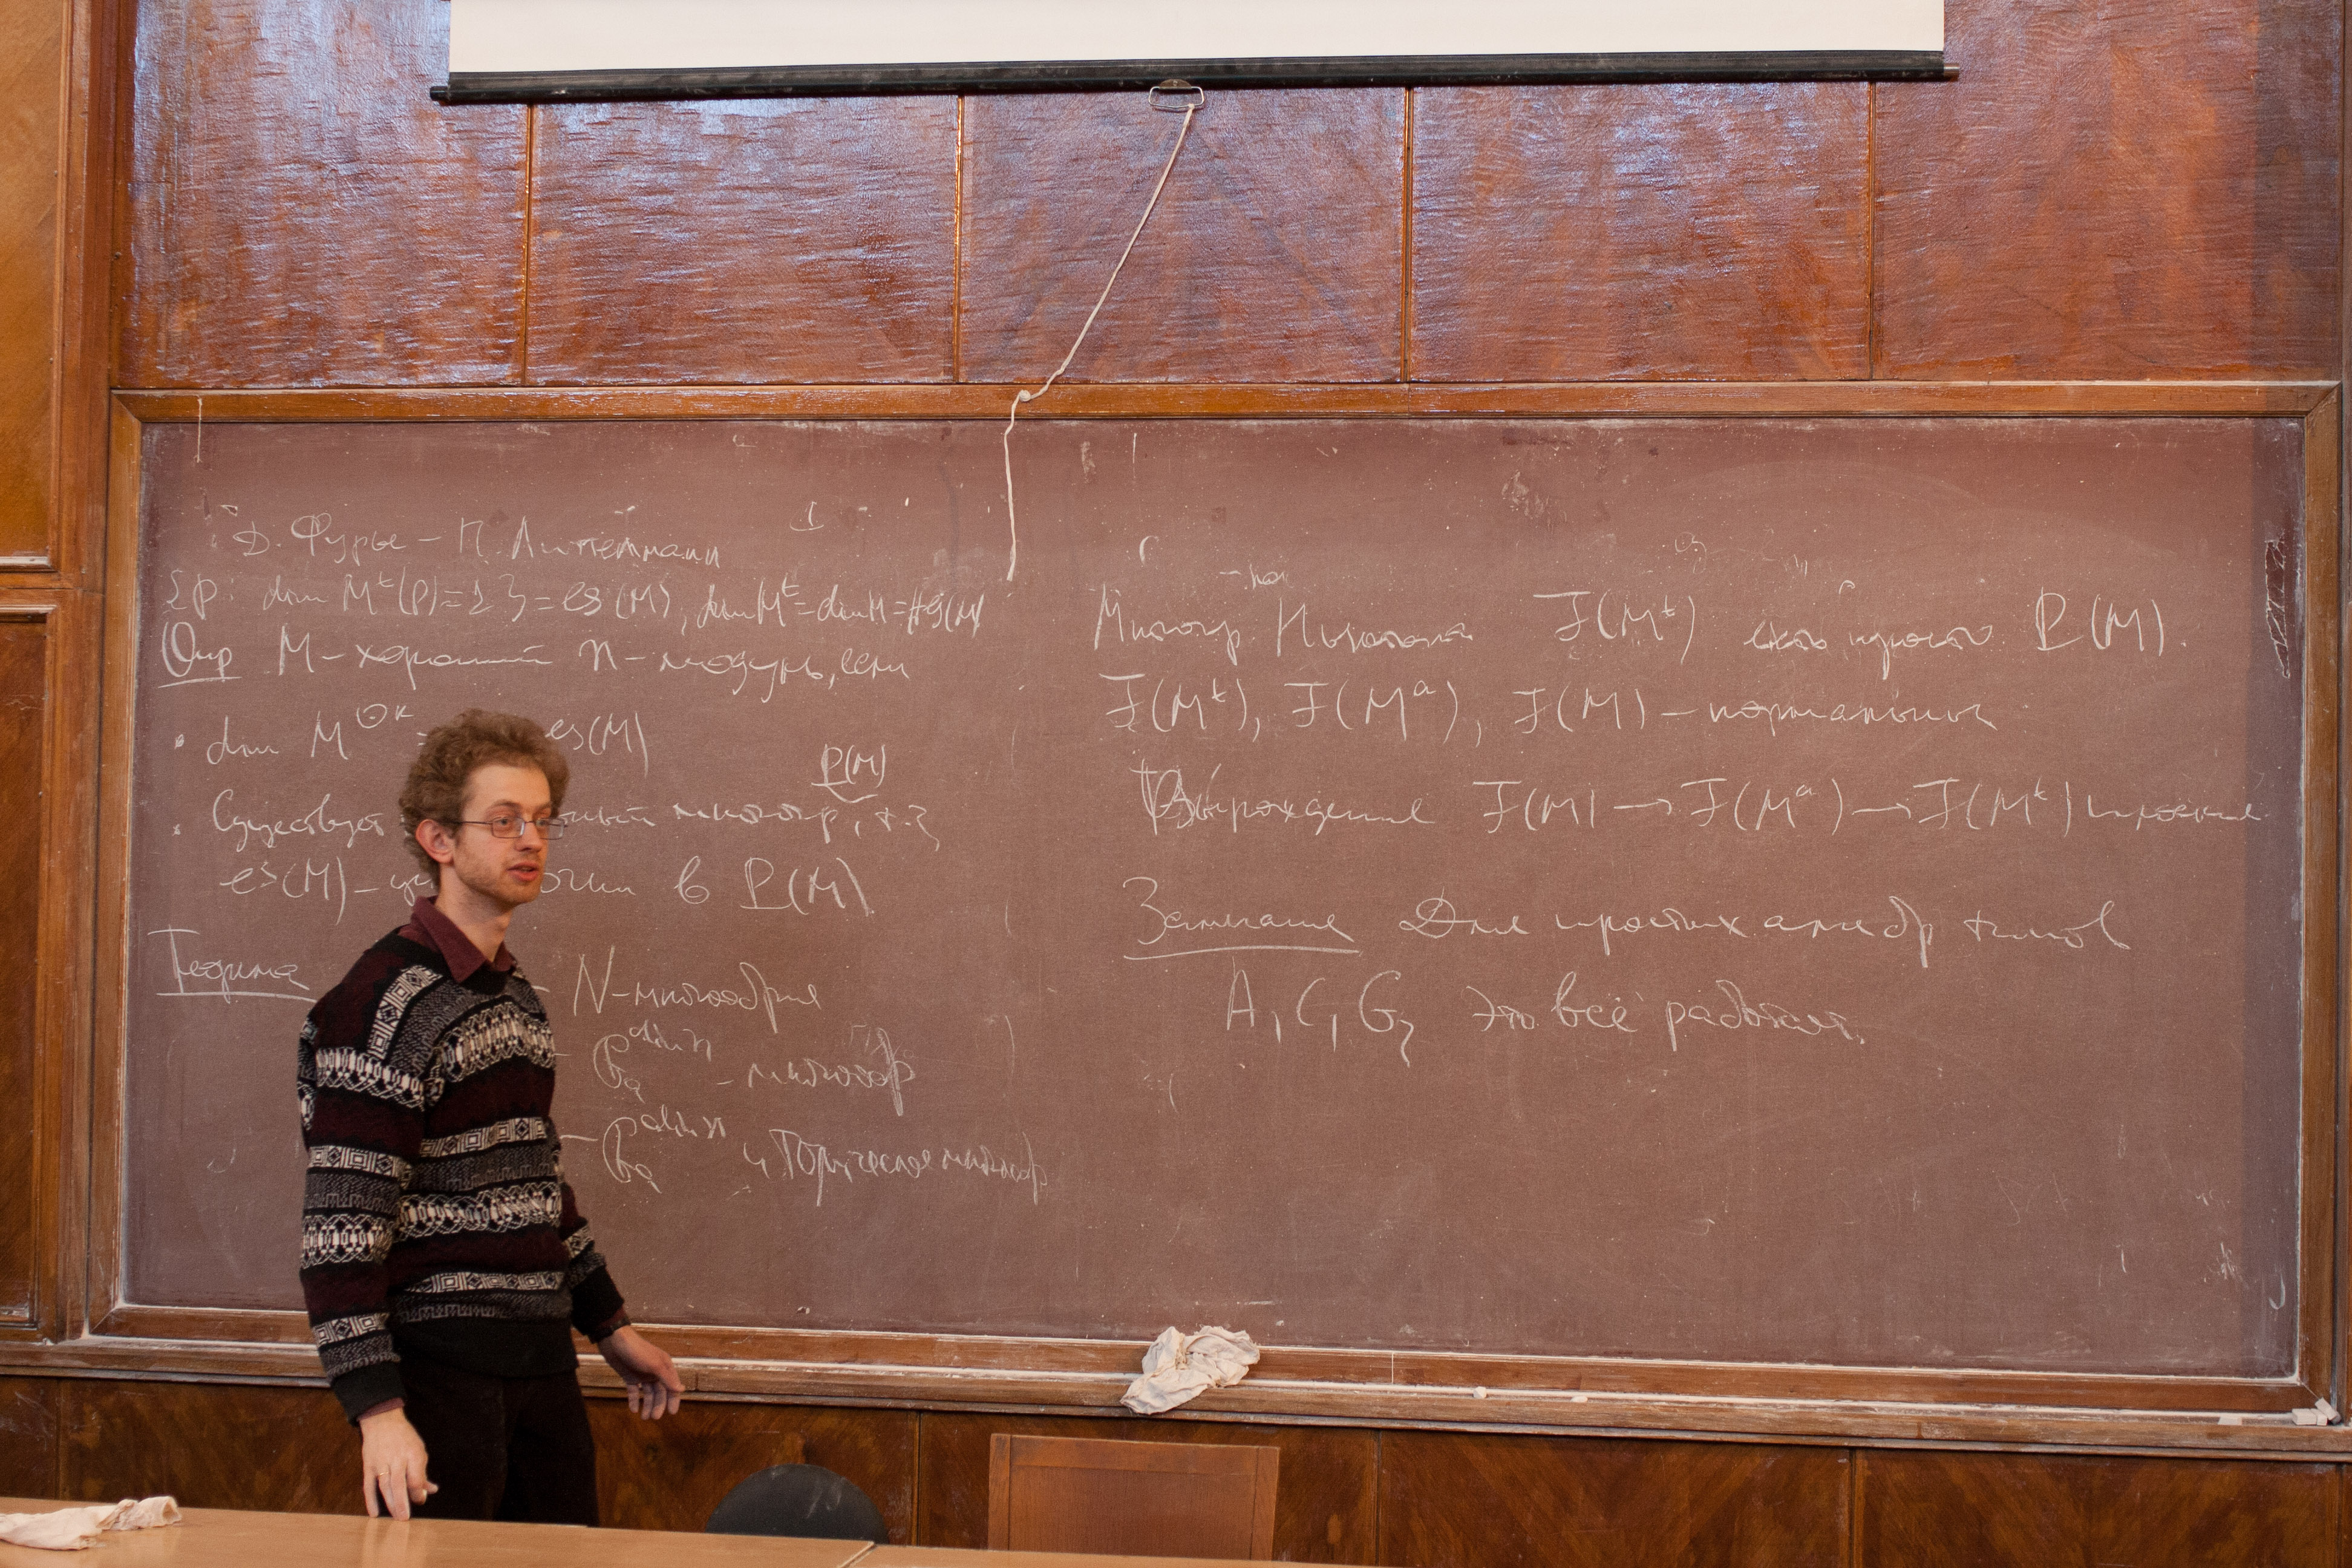 Д. Фурье – П. Литтельманн
{p: dim Mᵗ(p)=1} = es(M), dim Mᵗ = dim M = #es(M)
Опр M – хороший N-модуль, если
• dim M^⊙k = es(M)
P(M)
• Существует ный многогр, т.ч.
es(M) – точки в P(M)
Теорема – N-многообразия
– G_a^{dim N} – многообр
– G_a^{dim N} торическое многообр
Многогр Ньютона F(Mᵗ) есть просто P(M).
F(Mᵗ), F(Mᵃ), F(M) – нормальные
Вырождение F(M) → F(Mᵃ) → F(Mᵗ) плоские
Замечание Для простых алгебр типов
A, C, G₂ это всё работает.